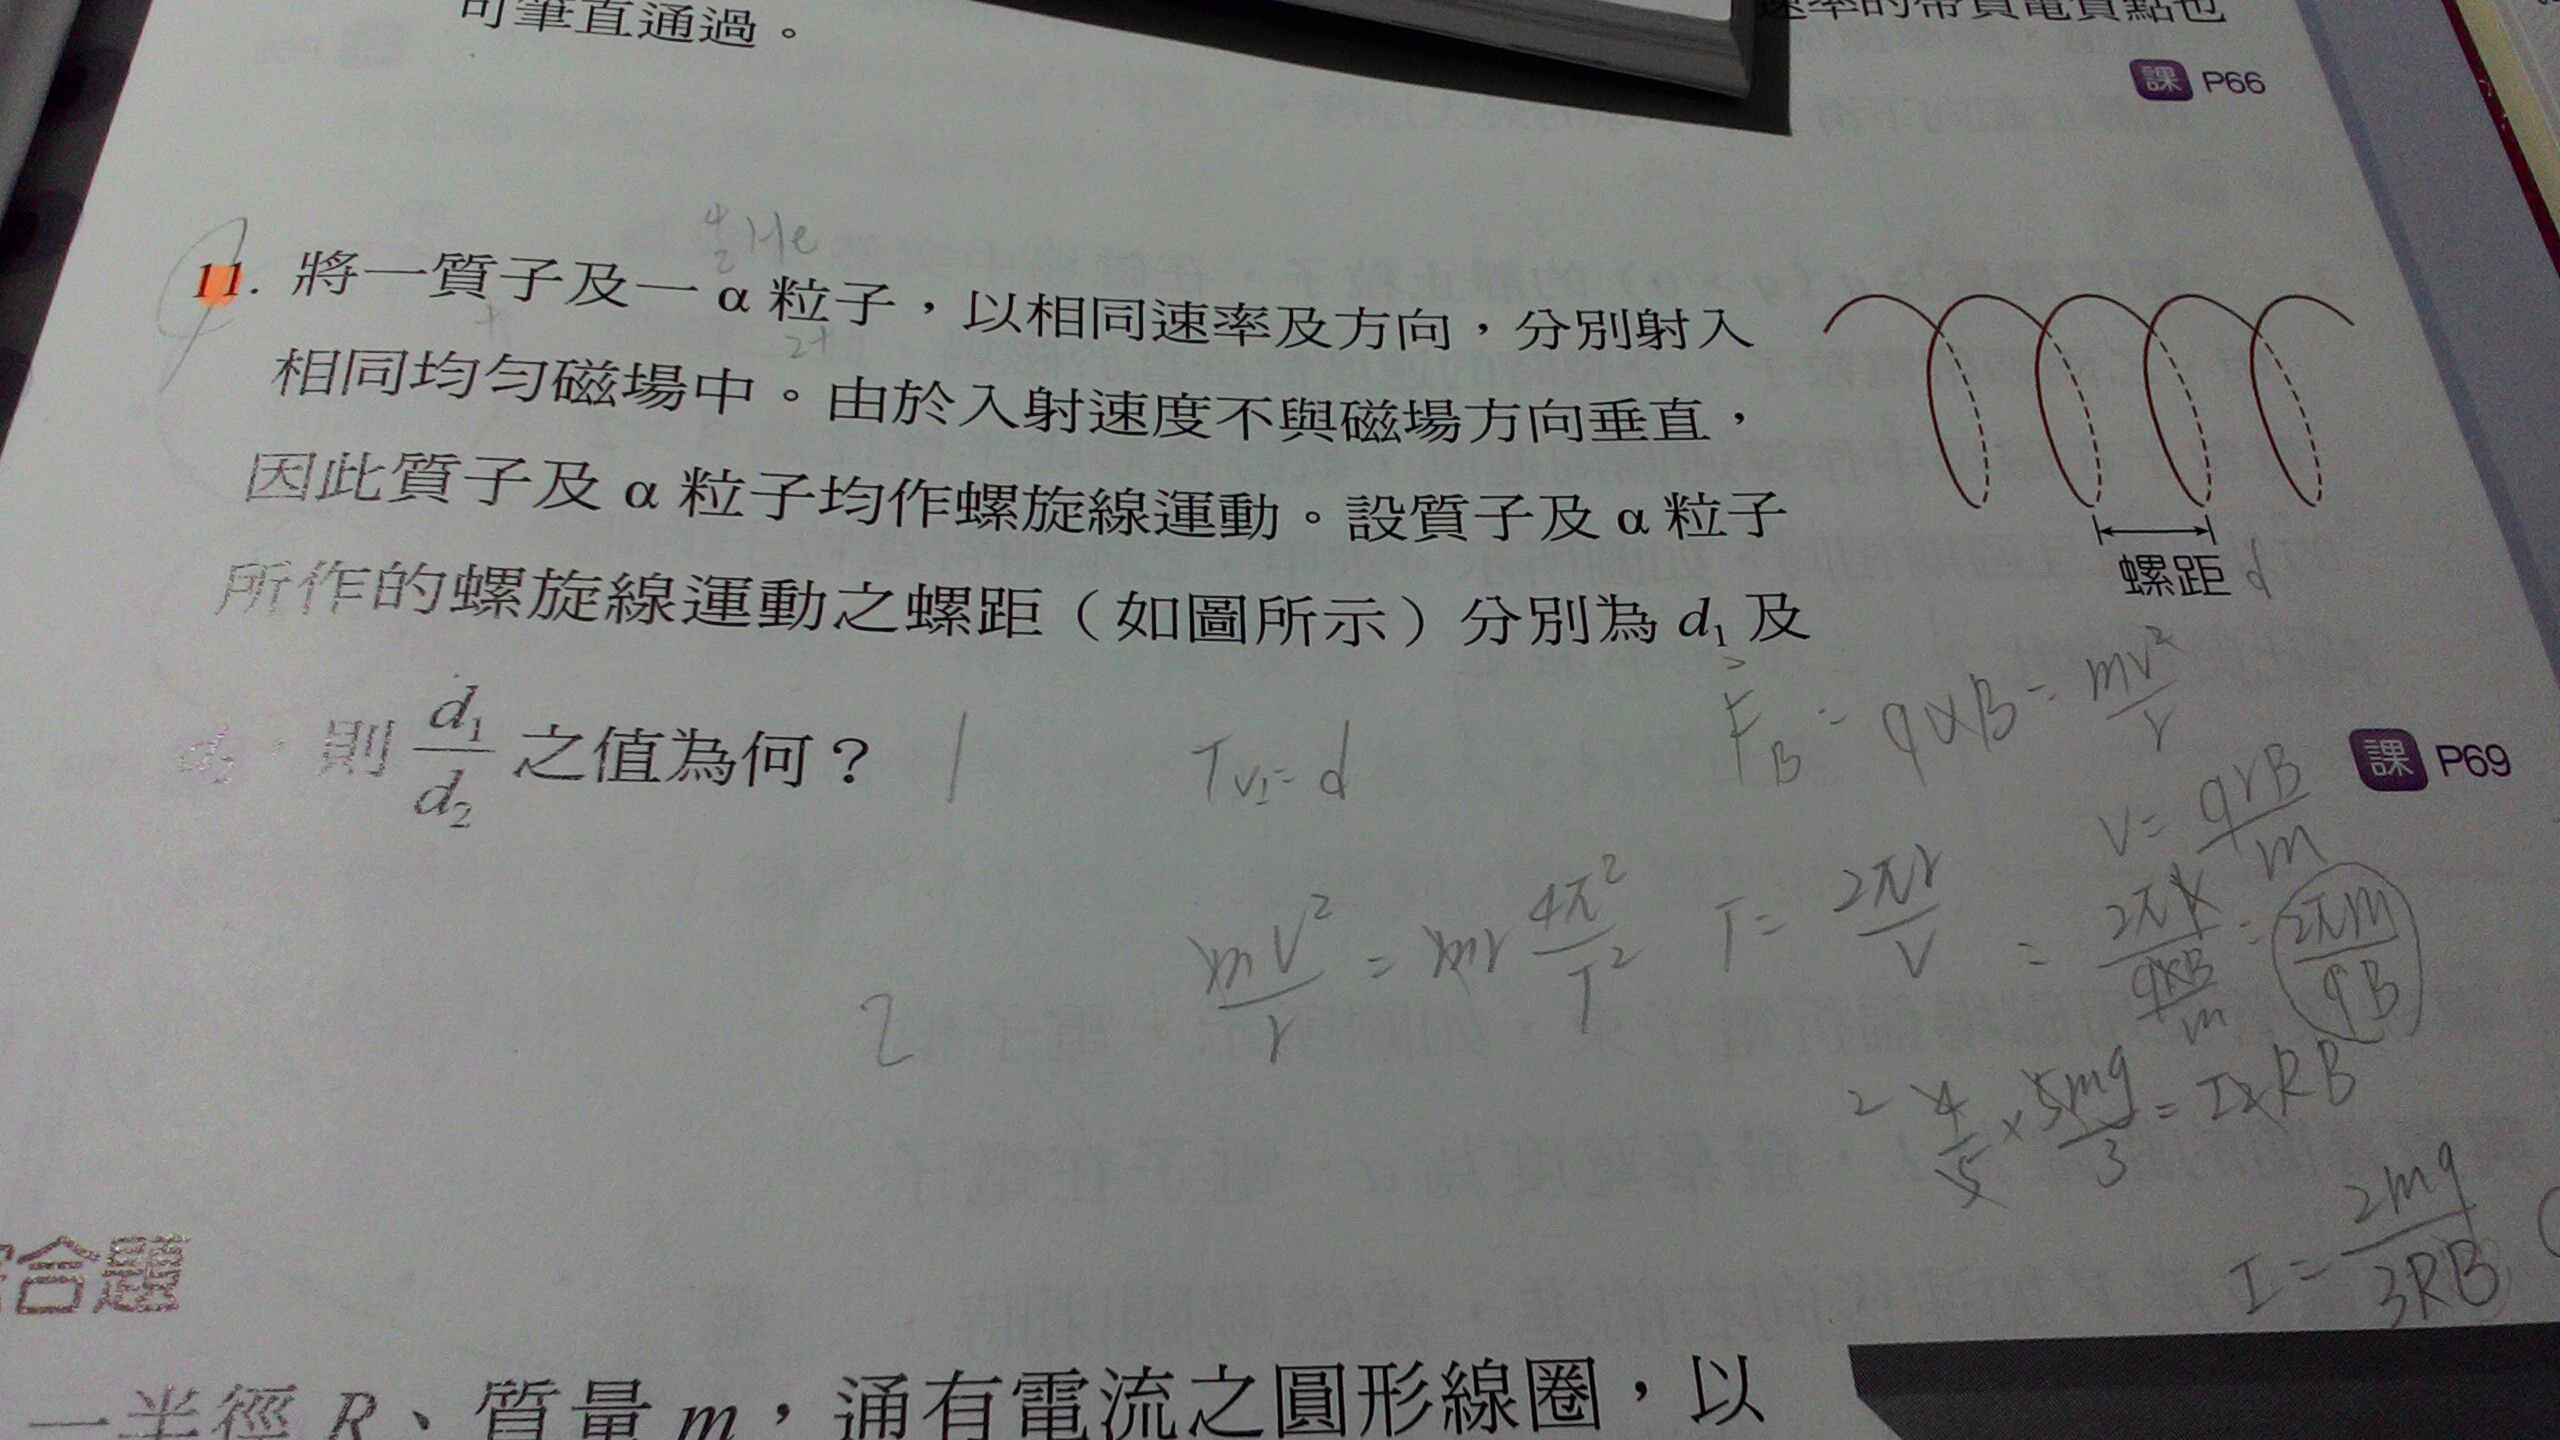 可筆直通過。
速率的帶負電質點也
課 P66
⁴₂He
11. 將一質子及一 α 粒子，以相同速率及方向，分別射入
+ 2+
相同均勻磁場中。由於入射速度不與磁場方向垂直，
因此質子及 α 粒子均作螺旋線運動。設質子及 α 粒子
所作的螺旋線運動之螺距（如圖所示）分別為 d₁ 及
d₂，則 d₁/d₂ 之值為何？
螺距 d
課 P69
1
2
mv²/r = mr 4π²/T²
T = 2πr/v = 2πr/(qrB/m) = 2πm/qB
v = qrB/m
4/5 × 5mg/3 = I2RB
2
I = 2mg/3RB
合題
一半徑 R、質量 m，通有電流之圓形線圈，以